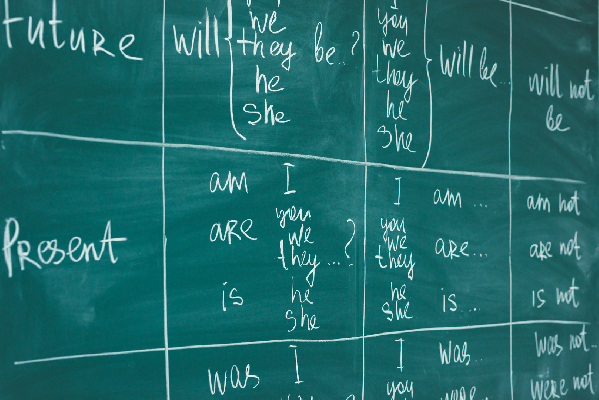 Future will you be..? you will be...
we we
they they
he he will not
she she be
am I I am... am not
are you you are... are not
we we
Present they...? they
is he he is... is not
she she
was I I was... was not
you were... were not